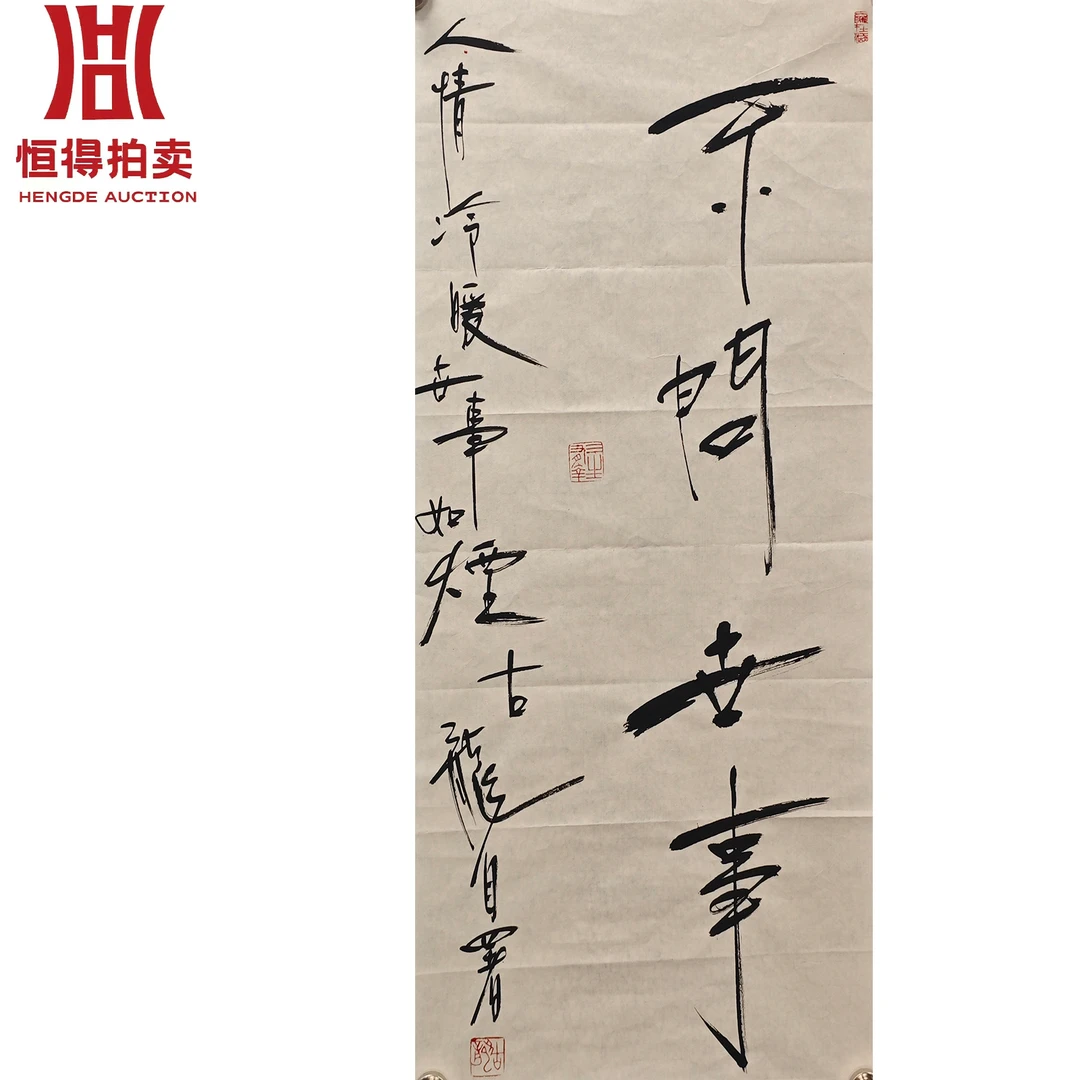 恒得拍卖
HENGDE AUCTION
不問世事
人情冷暖世事如煙古龍自署